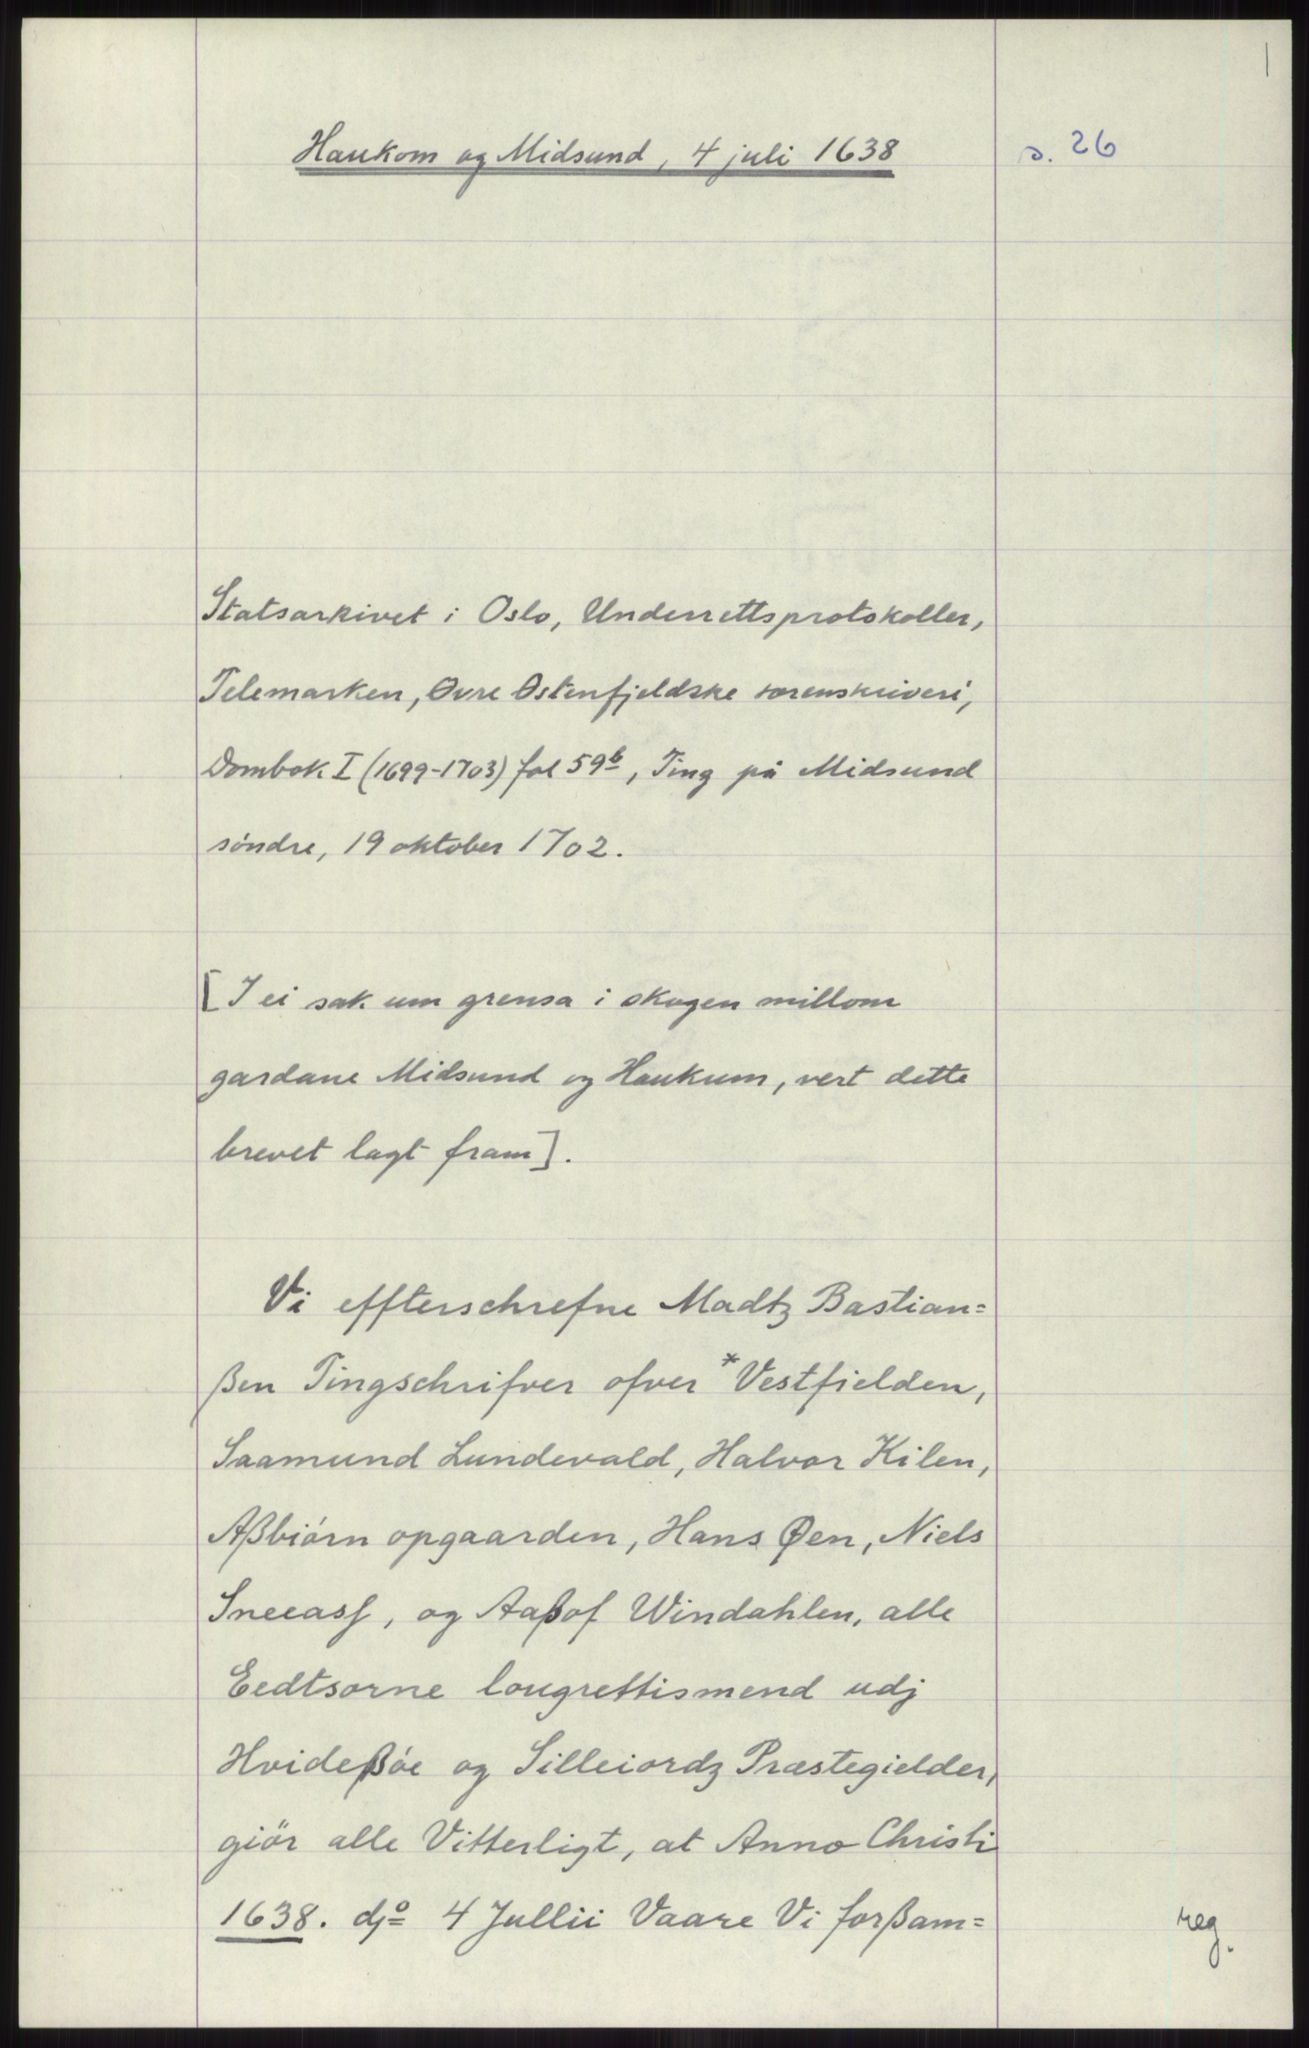 Haukom og Midsund, 4 juli 1638
s. 26
Statsarkivet i Oslo, Underrettsprotokoller,
Telemarken, Øvre Østenfjeldske sorenskriveri,
Dombok I (1699-1703) fol 59b, Ting på Midsund
söndre, 19 oktober 1702.
[I ei sak um grensa i skogen millom
gardane Midsund og Haukum, vert dette
brevet lagt fram].
Vi effterschrefne Madtz Bastian=
ßen Tingschrifver ofver *Vestfielden,
Saamund Lundevald, Halvor Kilen,
Aßbiörn opgaarden, Hans Øen, Niels
Sneeass, og Aaßof Windahlen, alle
Eedtsorne lougrettismend udj
Hvideßöe og Silleiordz Præstegielder,
giör alle Vitterligt, at Anno Christi
1638. djo 4 Jullii Vaare Vi forßam=
reg.